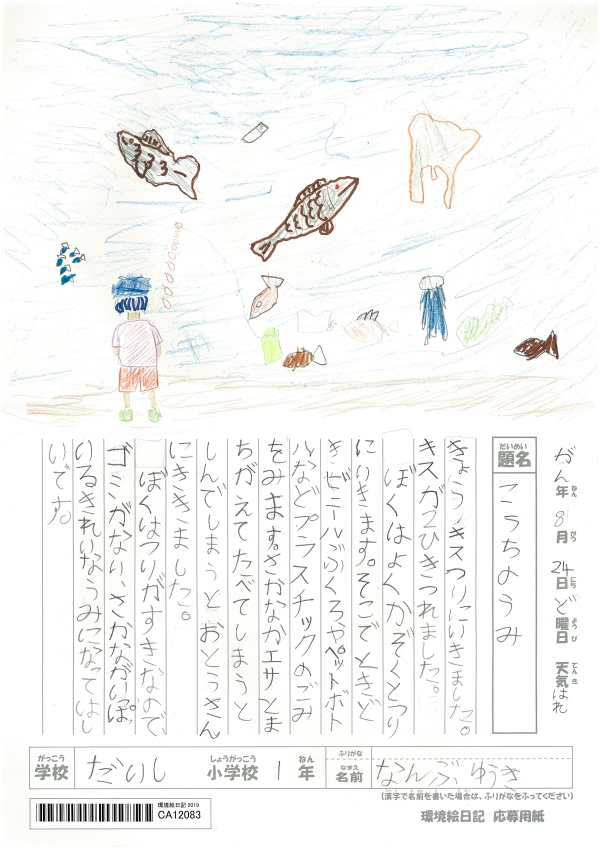 がん年 8月 24日 ど曜日 天気 はれ
ねん がつ にち ようび てんき
だいめい
題名 こうちようみ
きょう、キスつりにいきました。
キスが2ひきつれました。
ぼくはよくかぞくとつり
にいきます。そこでときど
き、ビニールぶくろやペットボト
ルなどプラスチックのごみ
をみます。さかなかエサとま
ちがえてたべてしまうと
しんでしまうとおとうさん
にききました。
ぼくはつりがすきなので、
ゴミがない、さかながいっぱ
いるきれいなうみになってほし
いです。
がっこう しょうがっこう ねん ふりがな
学校 だいし 小学校 1年 名前 なんぶゆうき
なまえ
(漢字で名前を書いた場合は、ふりがなをふってください)
環境絵日記2019
CA12083
環境絵日記 応募用紙